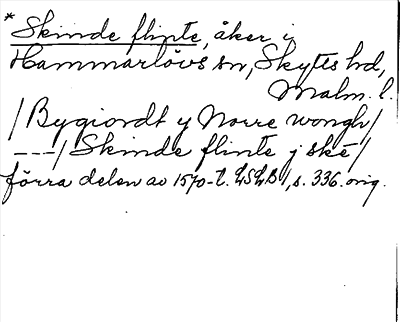 * Skinde flinte, åker i
Hammarlövs sn, Skytts hd,
Malm. l.
/ Bygiordt y Norre wongh /
---/ Skinde flinte j skè /
förra delen av 1570-t. LSLB 1, s. 336. orig.